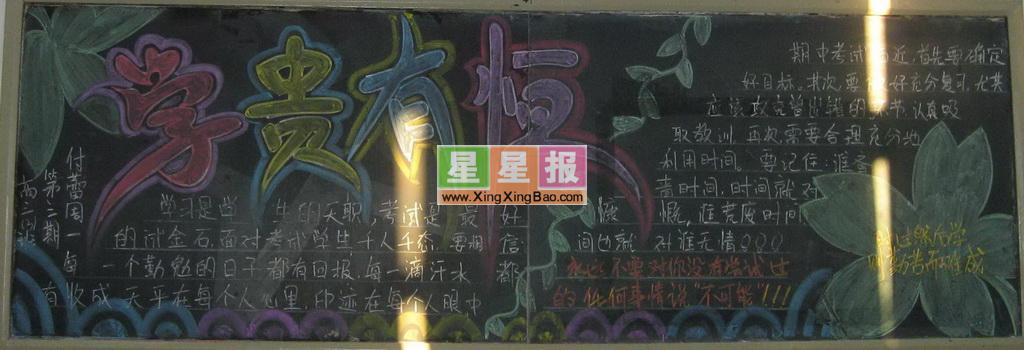 学贵有恒
星星报
www.XingXingBao.com
学习是学 生的天职,考试是最好
的试金石,面对考试学生千人千态,要相信
每一个勤勉的日子都有回报,每一滴汗水都
有收成 天平在每个人心里,印迹在每个人眼中
期中考试 近,首先要确定
好目标,其次要 好充分复习,尤其
应该 认真吸
取教训 再次需要合理充分地
利用时间 要记住:谁
时间,时间就对
慷慨,谁荒废时间
间也就 对谁无情
永远不要对你没有尝试过
的任何事情说"不可能"!!!